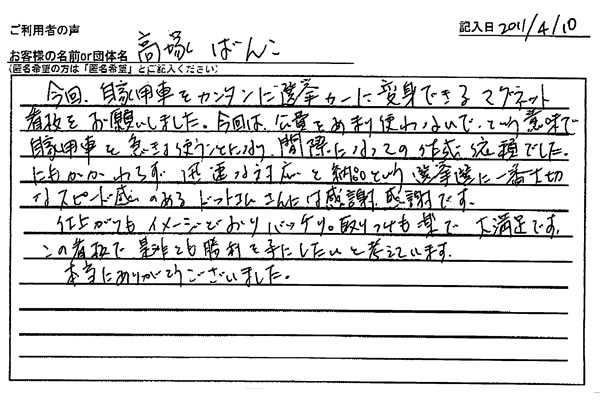 ご利用者の声
記入日 2011/4/10
お客様の名前or団体名 高塚 ばんこ
(匿名希望の方は「匿名希望」とご記入ください)
今回、自家用車をカンタンに選挙カーに変身できるマグネット
看板をお願いしました。今回は、公費をあまり使わないで、という意味で
自家用車を急きょ使うことになり、間際になっての作成依頼でした。
にもかかわらず、迅速な対応と納品という選挙選に一番大切
なスピード感のあるドットコムさんには感謝、感謝です。
仕上がりもイメージどおりバッチリ。取りつけも楽で大満足です。
この看板で是非とも勝利を手にしたいと考えています。
本当にありがとうございました。